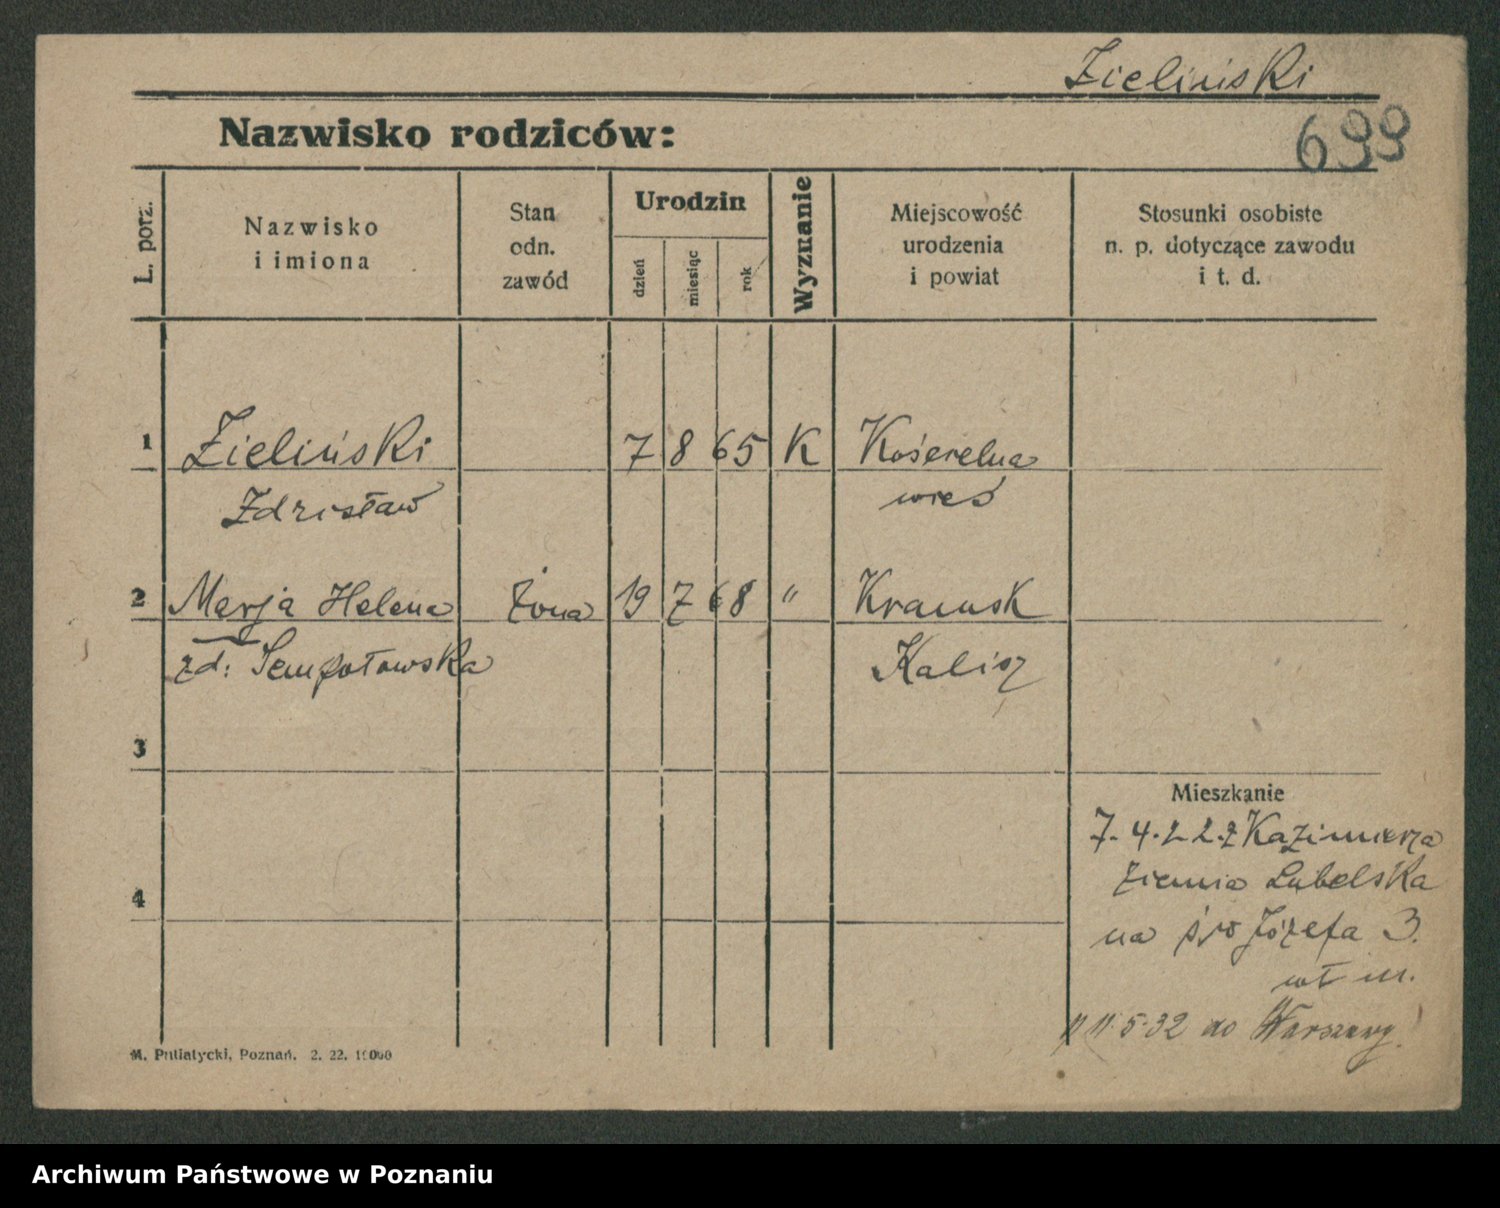 Zieliński
Nazwisko rodziców:
699
L. porz.
Nazwisko
i imiona
Stan
odn.
zawód
Urodzin
dzień
miesiąc
rok
Wyznanie
Miejscowość
urodzenia
i powiat
Stosunki osobiste
n. p. dotyczące zawodu
i t. d.
1 Zieliński 7 8 65 K Kościelna
Zdzisław wieś
2 Marja Helena żona 19 7 68 " Kramsk
zd: Sempołowska Kalisz
3
Mieszkanie
7.4.22 z Kazimierza
ziemia Lubelska
4
na św Józefa 3.
wł m.
11.5.32 do Warszawy
M. Putiatycki, Poznań. 2. 22. 10000
Archiwum Państwowe w Poznaniu